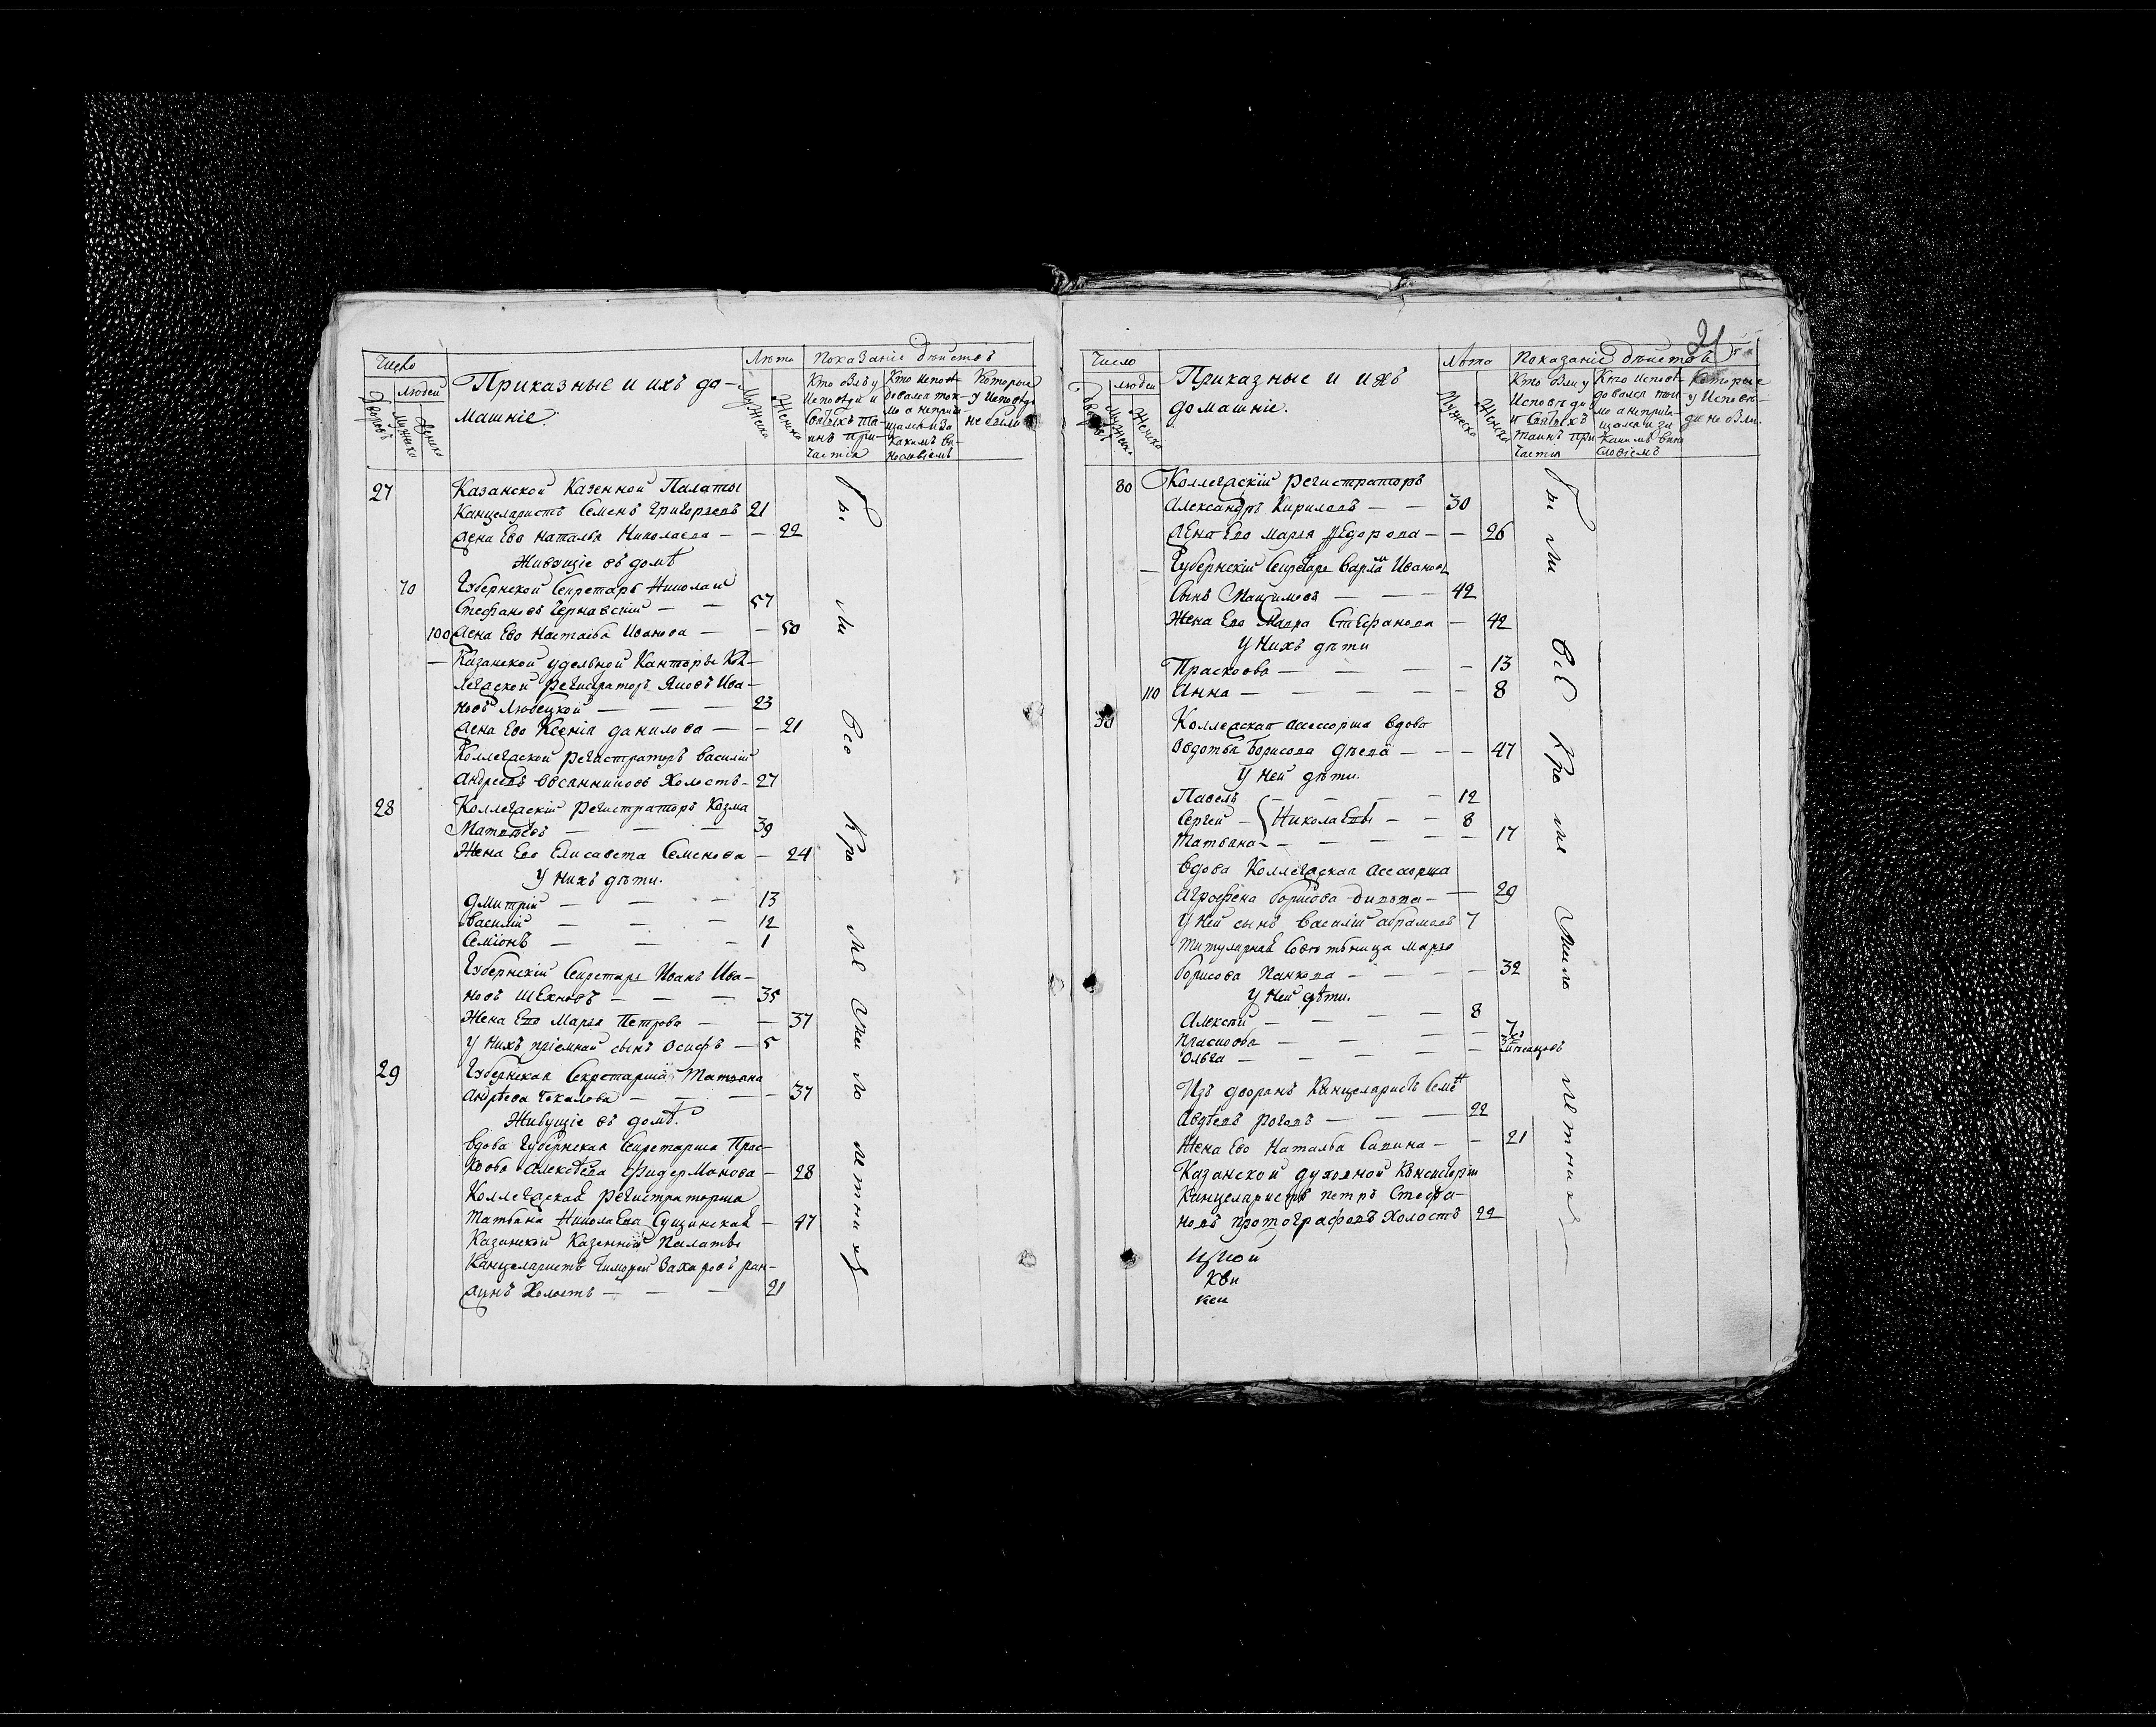 Число
Дворовъ
Людей
Мужеска
Женска
Приказные и ихъ до-
машніе.
Лѣта
Мужеска
Женска
Показаніе дѣйствъ
Кто былъ у
Исповѣди и
Святыхъ та-
инъ при-
частія
Кто испов-
ѣдался ток-
мо а неприча-
щался и за
какимъ ви-
нословіемъ
Которые
у Исповѣди
не были
27
Казанской Казенной Палаты
Канцеляристъ Семенъ Григорьевъ 21
Жена Ево Наталья Николаева — — 22
Живущіе въ домѣ
70 Губернской Секретарь Николай
Стефановъ Чернавскій — — 57
100 Жена Ево Настасья Иванова — — 50
— Казанской удѣльной Канторы Кол-
лежской Регистраторъ Яковъ Ива-
новъ Любецкой — — — 23
Жена Ево Ксенія данилова — — 21
Коллежской Регистраторъ Василій
Андреевъ Овсянниковъ Холостъ - 27
28 Коллежскій Регистраторъ Козма
Матвѣевъ — — — 39
Жена Ево Елисавета Семенова — 24
У нихъ дѣти.
Дмитрій — — — 13
Василій — — — 12
Семіонъ — — — 1
Губернскій Секретарь Иванъ Ива-
новъ — — — 35
Жена Ево Марья Петрова — — 37
У нихъ пріемной сынъ Осифъ — 5
29 Губернская Секретарша Татьяна
Андрѣева Чекалова — — — 37
Живущіе въ домѣ.
Вдова Губернская Секретарша Прас-
ковья Алексѣева Фидермонова — 28
Коллежская Регистраторша
Татьяна Николаева Сущинская — 47
Казанской Казенной Палаты
Канцеляристъ Тимофей Захаровъ
Холостъ — — — 21
бы ли Все Кро ме Ми ло лѣ тни хъ
21
Число
Дворовъ
Людей
Мужеска
Женска
Приказные и ихъ
домашніе.
Лѣта
Мужеска
Женска
Показаніе дѣйствъ
Кто были у
Исповѣди
и Святыхъ
Таинъ при-
частія
Кто исповѣ-
довался ток
мо а неприча-
щался и за
какимъ вино
словіемъ
Которые
у Исповѣ-
ди не были.
80 Коллежскій Регистраторъ
Александръ Кириловъ — — 30
Жена Ево Марья Федорова — — 26
— Губернскій Секретарь Иванов
Сынъ Максимовъ — — — 42
Жена Ево Мавра Стефанова — 42
У Нихъ дѣти
Прасковья — — — — 13
110 Анна — — — — — 8
30 Коллежская Ассесорша вдова
Овдотья Борисова — — — 47
У ней дѣти.
Павелъ — — — — 12
Сергей — Николаевы — — 8
Татьяна — — — — — 17
Вдова Коллежская Ассесорша
Агрофена Борисова — — 29
У ней сынъ Василій Абрамовъ 7
Титулярная Совѣтница Марья
Борисова Панкова — — — 32
У ней дѣти.
Алексѣй — — — — 8
— — — — 7
Ольга — — — — мѣсяцовъ
Изъ дворянъ Канцеляристъ
Авдѣевъ — — — 22
Жена Ево Наталья Савина — — 21
Казанской духовной Консисторіи
Канцеляристъ Петръ Стефа-
новъ Протографовъ Холостъ 22
бы ли Все Кро ме Мило лѣтнихъ